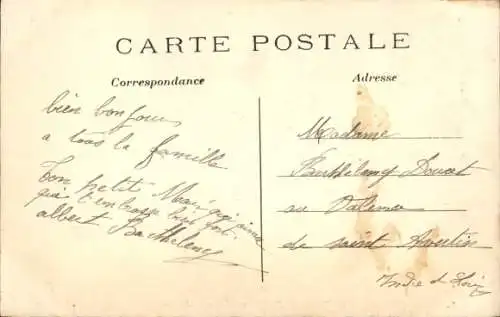 CARTE POSTALE
Correspondance
Adresse
bien bonjour
a tous la famille
ton petit Mari qui aime
qui t'embrasse bien fort
albert Barthelemy
Madame
Barthelemy Douat
au Valence
de saint Avertin
Indre et Loire